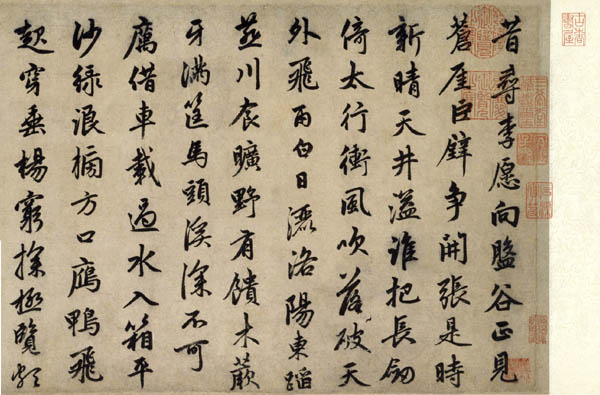 昔尋李愿向盤谷正見
蒼崖巨壁争開張是時
新晴天井溢誰把長劒
倚太行衝風吹落破天
外飛雨白日灑洛陽東蹈
燕川食曠野有饋木蕨
牙滿筐馬頭溪深不可
厲借車載過水入箱平
沙綠浪搒方口鴈鴨飛
起穿垂楊窮探極覽頗